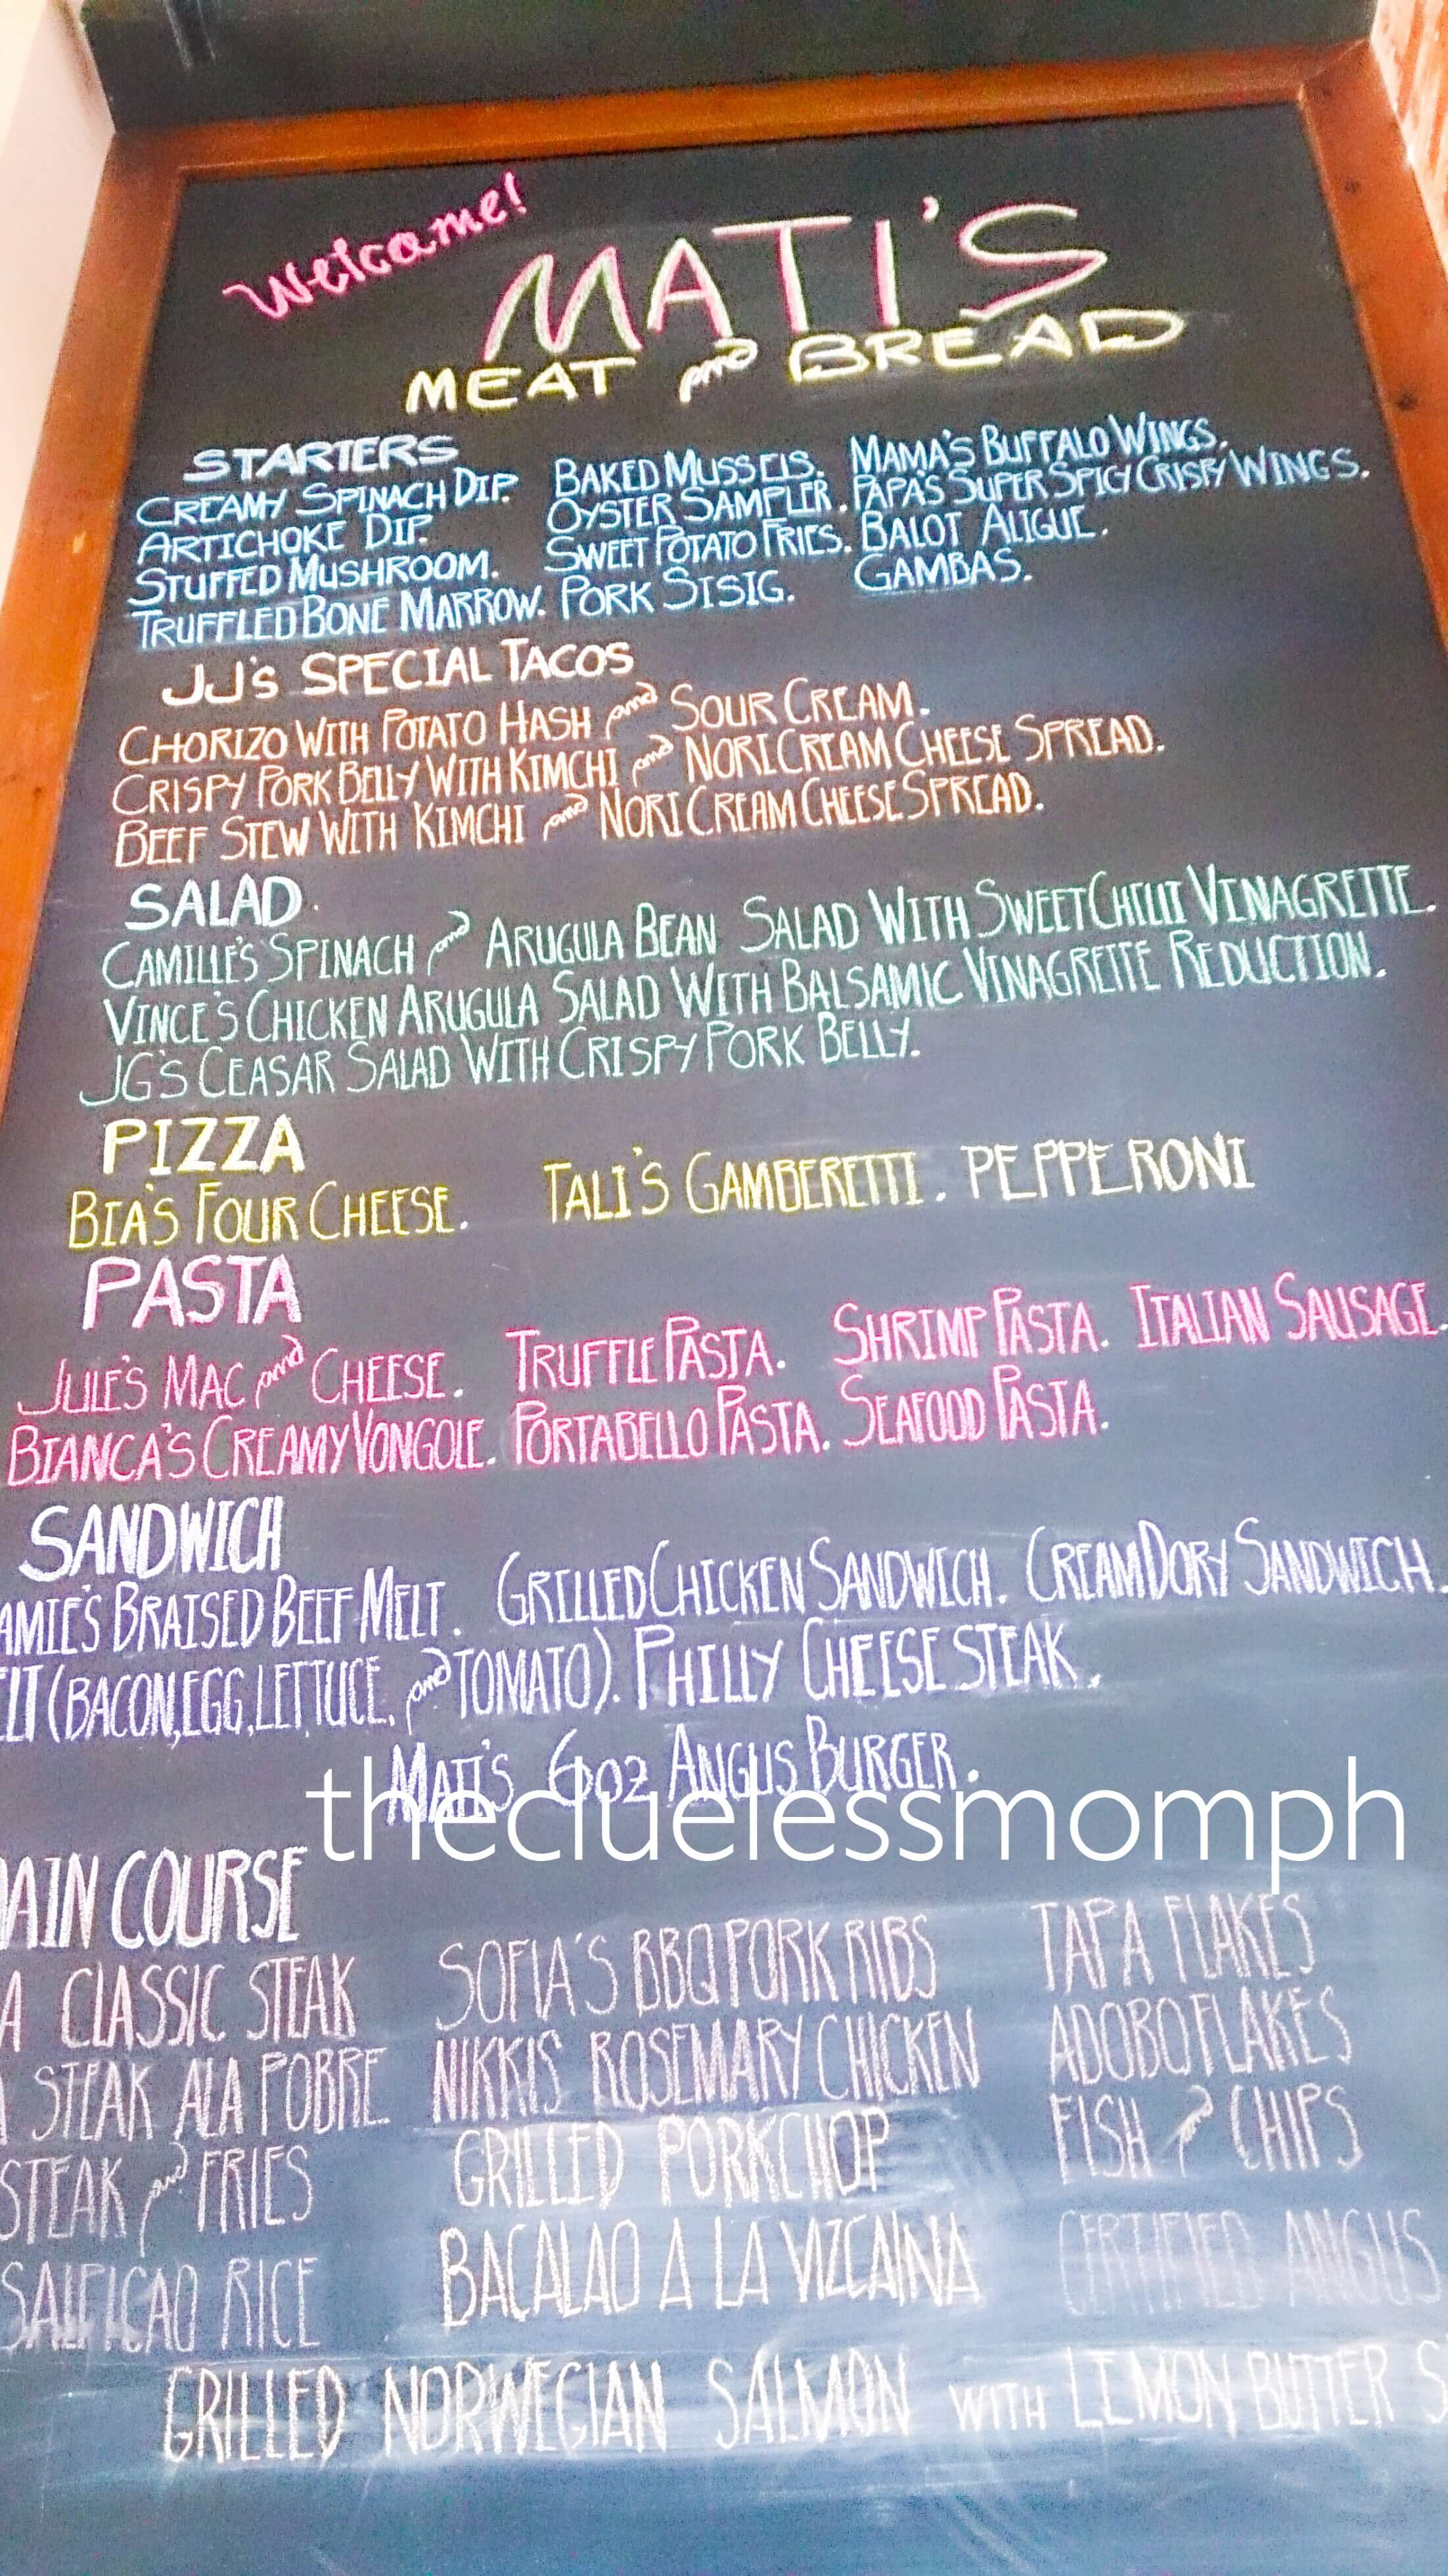 Welcome!
MATI'S
MEAT and BREAD
STARTERS
CREAMY SPINACH DIP. BAKED MUSSELS. MAMA'S BUFFALO WINGS.
ARTICHOKE DIP. OYSTER SAMPLER. PAPA'S SUPER SPICY CRISPY WINGS.
STUFFED MUSHROOM. SWEET POTATO FRIES. BALOT ALIGUE.
TRUFFLED BONE MARROW. PORK SISIG. GAMBAS.
JJ'S SPECIAL TACOS
CHORIZO WITH POTATO HASH and SOUR CREAM.
CRISPY PORK BELLY WITH KIMCHI and NORI CREAM CHEESE SPREAD.
BEEF STEW WITH KIMCHI and NORI CREAM CHEESE SPREAD.
SALAD.
CAMILLE'S SPINACH and ARUGULA BEAN SALAD WITH SWEET CHILLI VINAGRETTE.
VINCE'S CHICKEN ARUGULA SALAD WITH BALSAMIC VINAGRETTE REDUCTION.
JG'S CEASAR SALAD WITH CRISPY PORK BELLY.
PIZZA
BIA'S FOUR CHEESE. TALI'S GAMBERETTI. PEPPERONI
PASTA
JULE'S MAC and CHEESE. TRUFFLE PASTA. SHRIMP PASTA. ITALIAN SAUSAGE.
BIANCA'S CREAMY VONGOLE. PORTABELLO PASTA. SEAFOOD PASTA.
SANDWICH
AMIE'S BRAISED BEEF MELT. GRILLED CHICKEN SANDWICH. CREAM DORY SANDWICH.
ELT (BACON, EGG, LETTUCE, and TOMATO). PHILLY CHEESE STEAK.
MATI'S 6oz ANGUS BURGER.
thecluelessmomph
AIN COURSE
A CLASSIC STEAK SOFIA'S BBQ PORK RIBS TAPA FLAKES
STEAK ALA POBRE NIKKIS ROSEMARY CHICKEN ADOBO FLAKES
STEAK and FRIES GRILLED PORKCHOP FISH and CHIPS
SALPICAO RICE BACALAO A LA VIZCAINA CERTIFIED ANGUS
GRILLED NORWEGIAN SALMON WITH LEMON BUTTER S